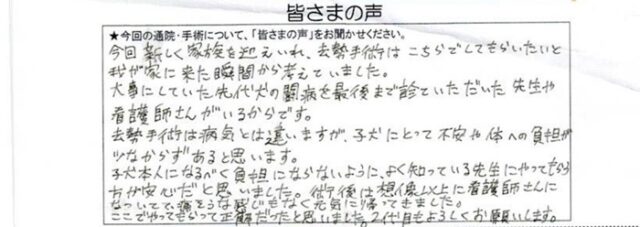 皆さまの声
★今回の通院・手術について、「皆さまの声」をお聞かせください。
今回 新しく家族を迎えいれ、去勢手術は こちらでしてもらいたいと
我が家に来た瞬間から考えていました。
大事にしていた先代犬の闘病を最後まで診ていただいた 先生や
看護師さんがいるからです。
去勢手術は病気とは違いますが、子犬にとって 不安や 体への負担が
少なからずあると思います。
子犬本人になるべく負担にならないように、よく知っている先生にやってもらう
方が安心だと思いました。術後は想像以上に看護師さんに
なついてて、痛そうな感じもなく元気に帰ってきました。
ここでやってもらって正解だったと思いました。2代目もよろしくお願いします。